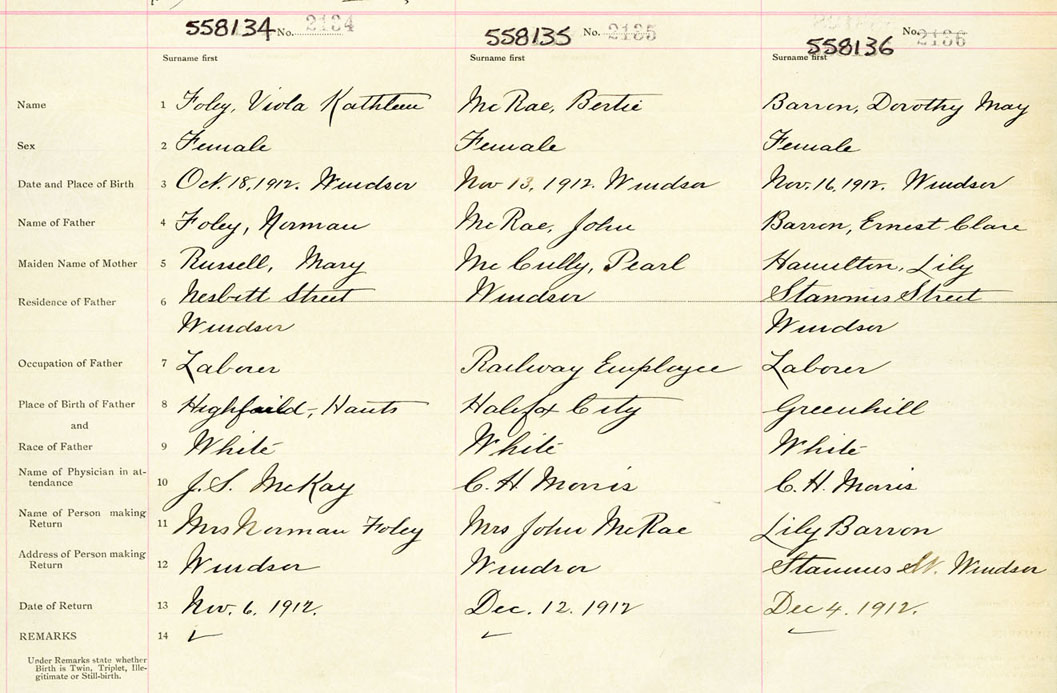 558134 No. 2134 558135 No. 2135 558136 No. 2136
Surname first Surname first Surname first
Name 1 Foley, Viola Kathleen McRae, Bertie Barron, Dorothy May
Sex 2 Female Female Female
Date and Place of Birth 3 Oct. 18, 1912. Windsor Nov 13, 1912. Windsor Nov. 16, 1912. Windsor
Name of Father 4 Foley, Norman McRae, John Barron, Ernest Clare
Maiden Name of Mother 5 Russell, Mary McCully, Pearl Hamilton, Lily
Residence of Father 6 Nesbitt Street Windsor Stannus Street
Windsor Windsor
Occupation of Father 7 Laborer Railway Employee Laborer
Place of Birth of Father 8 Highfield, Hants Halifax City Greenhill
and
Race of Father 9 White White White
Name of Physician in at-
tendance 10 J. S. McKay C. H. Morris C. H. Morris
Name of Person making
Return 11 Mrs Norman Foley Mrs John McRae Lily Barron
Address of Person making
Return 12 Windsor Windsor Stannus St. Windsor
Date of Return 13 Nov. 6. 1912. Dec. 12. 1912 Dec 4. 1912.
REMARKS 14
Under Remarks state whether
Birth is Twin, Triplet, Ille-
gitimate or Still-birth.